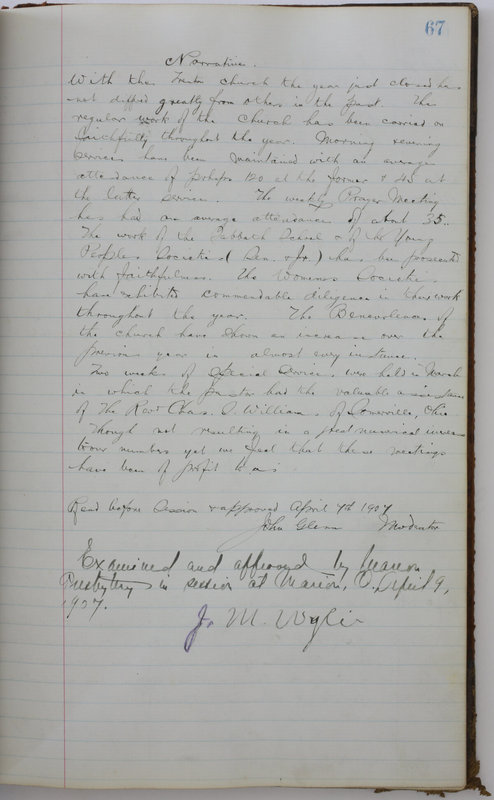 67
Narrative.
With the church the year just closed has
not differed greatly from others in the past. The
regular work of the Church has been carried on
faithfully throughout the year. Morning & evening
services have been maintained with an average
attendance of perhaps 120 at the former & at
the latter service. The weekly Prayer Meeting
has had an average attendance of about 35.
The work of the Sabbath School & of the Young
Peoples Societies (Sen. & Jr.) has been prosecuted
with faithfulness. The Womens Societies
have exhibited commendable diligence in their work
throughout the year. The Benevolences of
the church have shown an increase over the
previous year in almost every instance.
Two weeks of Special Services were held in March
in which the pastor had the valuable assistance
of The Rev. Chas. O. Williams of Somerville, Ohio
Though not resulting in a great numerical increase
to our numbers yet we feel that these meetings
have been of profit to us
Read before Session & approved April 7th 1907
John Glenn Moderator
Examined and approved by Marion
Presbytery in session at Marion, O., April 9,
1907.
J. M. Wylie